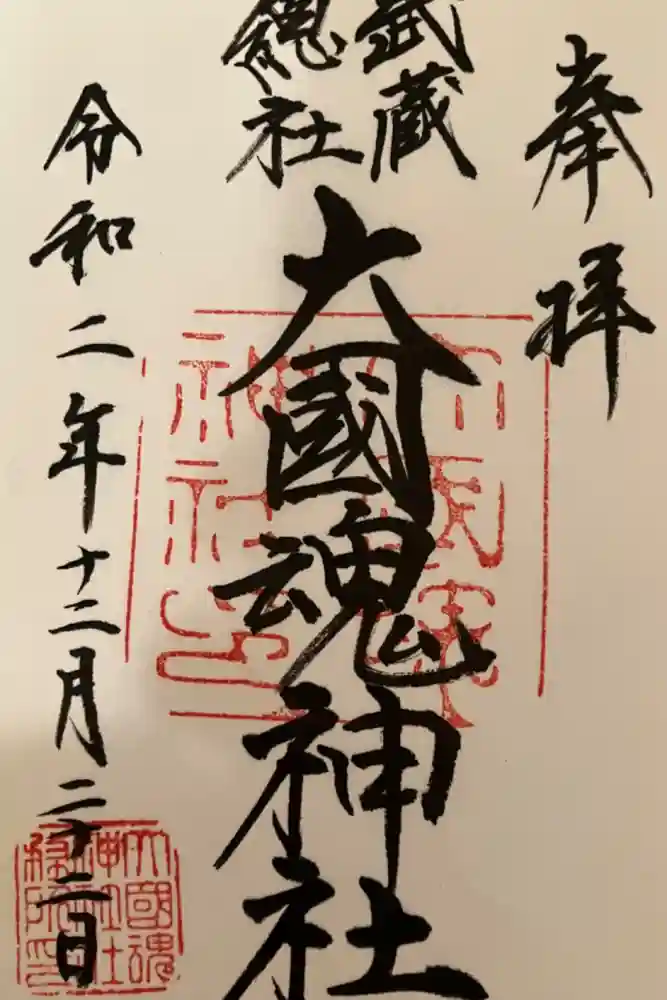 奉拝
武蔵
總社
大國魂神社
令和二年十二月二十二日
大國魂
神社印
大國魂
神社社
務所印